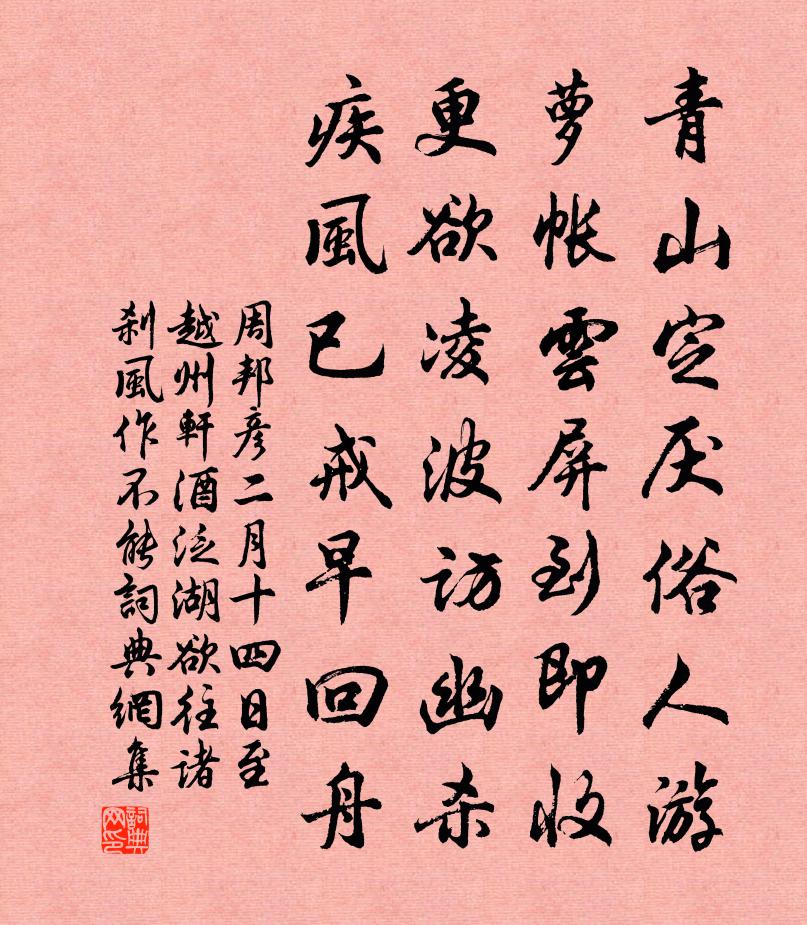 青山定厌俗人游
萝帐雲屏到即收
更欲凌波访幽杀
疾風已戒早回舟
周邦彦二月十四日至
越州軒酒泛湖欲往諸
刹風作不能詞典網集
詞典网印